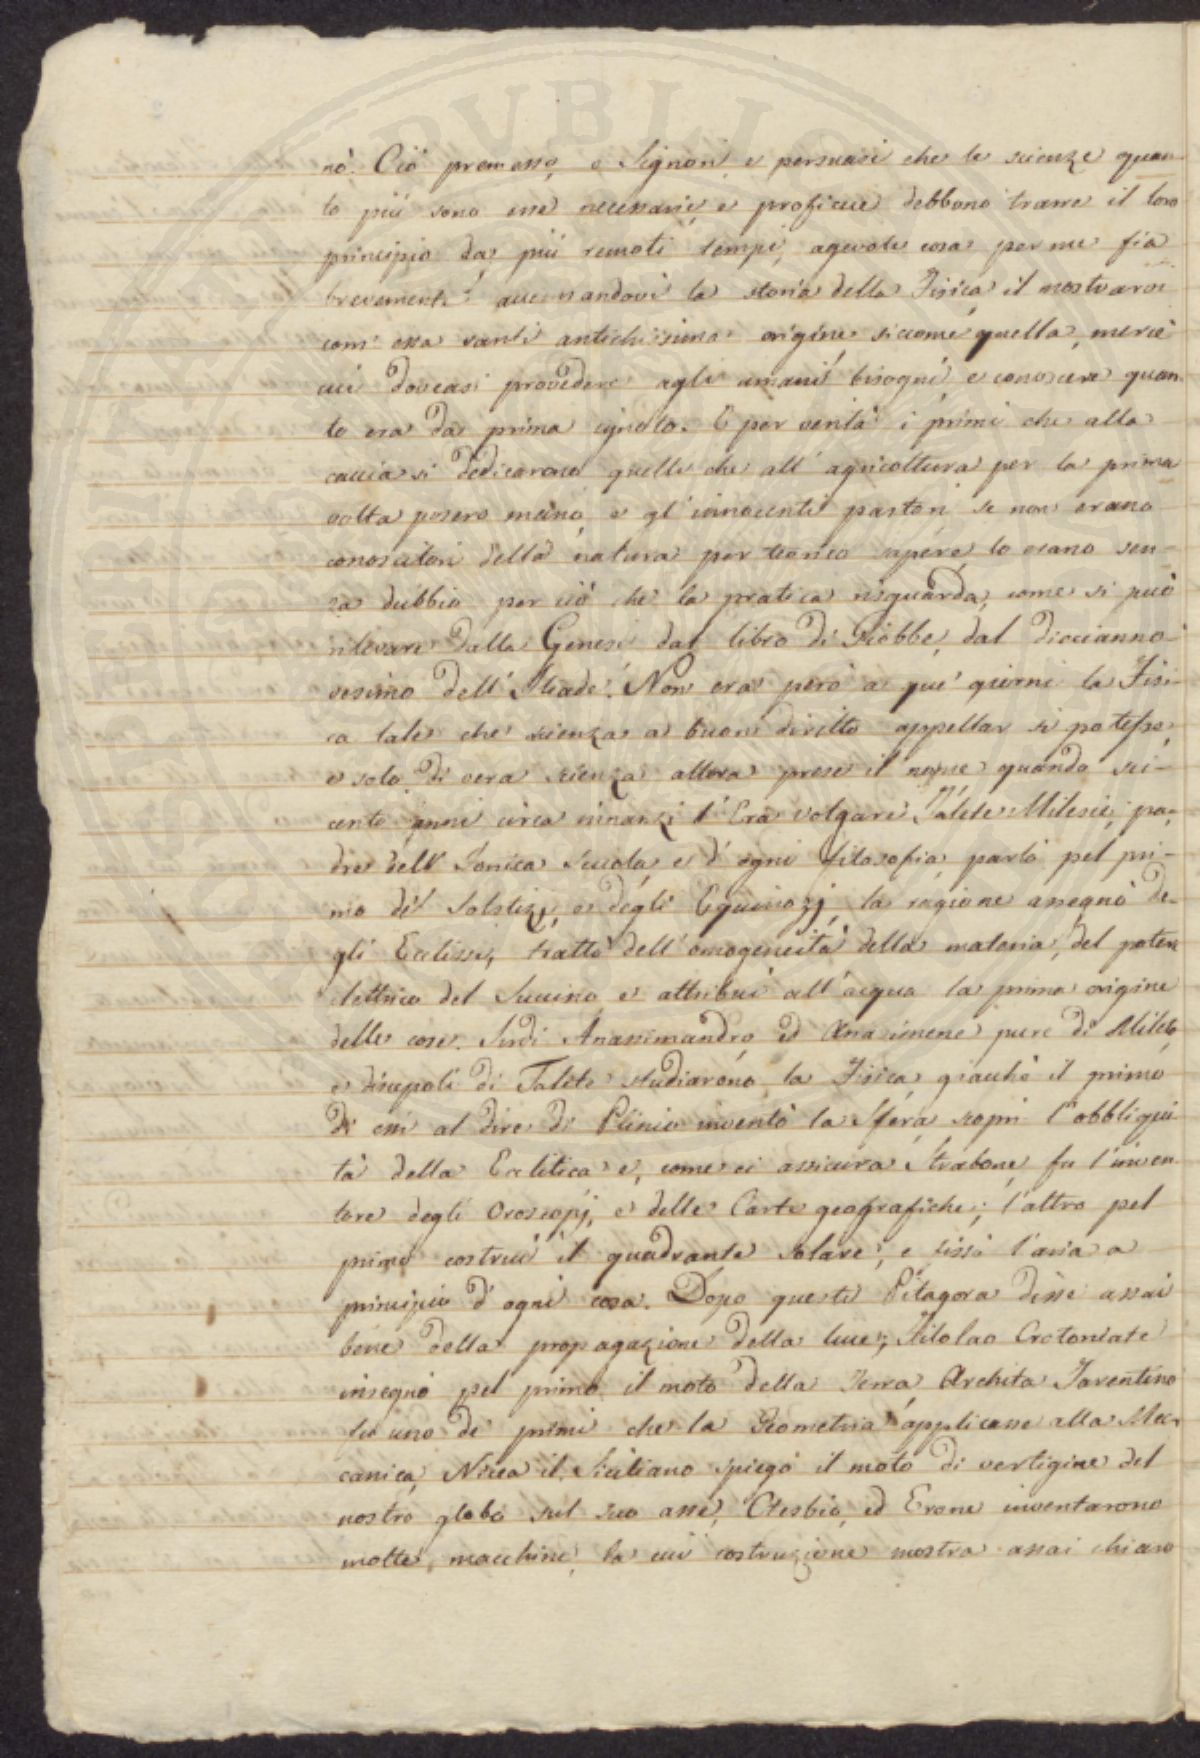 nò. Ciò premesso, o Signori, e persuasi che le scienze quan-
to più sono esse necessarie e proficue debbono trarre il loro
principio da più remoti tempi, agevole cosa per me fia
brevemente accennandovi la storia della Fisica il mostrarvi
com' essa vanti antichissima origine, siccome quella, mercè
cui doveasi provedere agli umani bisogni e conoscere quan-
to era da prima ignoto. E per verità i primi che alla
caccia si dedicarono quelli che all' agricoltura per la prima
volta posero mano, e gl' innocenti pastori se non erano
conoscitori della natura per teorico sapere, lo erano sen-
za dubbio per ciò che la pratica risguarda, come si può
rilevare dalla Genesi dal libro di Giobbe, dal dicianno-
vesimo dell' Iliade. Non era però a que' giorni la Fisi-
ca tale che scienza a buon diritto appellar si potesse,
e solo di vera scienza allora prese il nome quando sei-
cento anni circa innanzi l' Era volgare Talete Milesio, pa-
dre dell' Jonica Scuola, e d' ogni filosofia, parlò pel pri-
mo de' Solstizj, e degli Equinozj, la ragione assegnò de-
gli Ecclissi, trattò dell' omogeneità della materia, del poter
elettrico del Succino e attribuì all' acqua la prima origine
delle cose. Indi Anassimandro ed Anassimene pure di Mileto,
e discepoli di Talete studiarono la Fisica, giacchè il primo
di essi al dire di Plinio inventò la Sfera scoprì l' obbliqui-
tà della Ecclitica e, come ci assicura Strabone, fu l' inven-
tore degli Oroscopj, e delle Carte geografiche; l' altro pel
primo costruì il quadrante solare, e fissò l' aria a
principio d' ogni cosa. Dopo questi Pitagora disse assai
bene della propagazione della luce; Filolao Crotoniate
insegnò pel primo il moto della Terra, Archita Tarentino
fu uno de' primi che la Geometria applicasse alla Mec-
canica, Nicea il Siciliano spiegò il moto di vertigine del
nostro globo sul suo asse, Ctesbio, ed Erone inventarono
molte macchine, la cui costruzione mostra assai chiaro